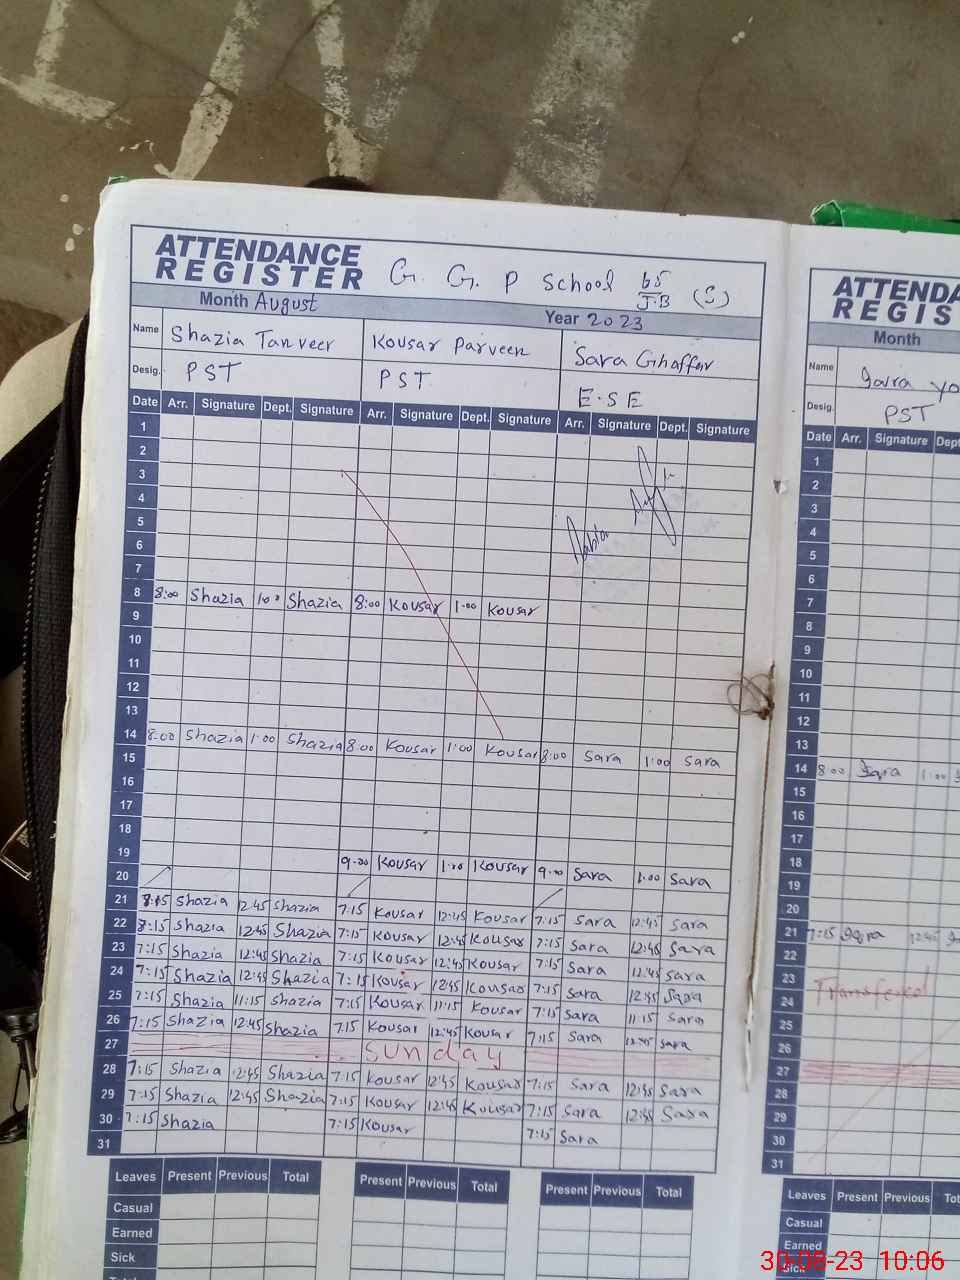 ATTENDANCE REGISTER G. G. P School 65 J.B (S)
Month August Year 2023
Name Shazia Tanveer Kousar Parveen Sara Ghaffar
Desig. PST PST E.SE
Date Arr. Signature Dept. Signature Arr. Signature Dept. Signature Arr. Signature Dept. Signature
1
2
3
4
5
6
7
8 8:00 Shazia 1:00 Shazia 8:00 Kousar 1:00 Kousar
9
10
11
12
13
14 8:00 Shazia 1:00 Shazia 8:00 Kousar 1:00 Kousar 8:00 Sara 1:00 Sara
15
16
17
18
19 9:00 Kousar 1:00 Kousar 9:00 Sara 1:00 Sara
20
21 8:15 Shazia 12:45 Shazia 7:15 Kousar 12:45 Kousar 7:15 Sara 12:45 Sara
22 8:15 Shazia 12:45 Shazia 7:15 Kousar 12:45 Kousar 7:15 Sara 12:45 Sara
23 7:15 Shazia 12:45 Shazia 7:15 Kousar 12:45 Kousar 7:15 Sara 12:45 Sara
24 7:15 Shazia 12:45 Shazia 7:15 Kousar 12:45 Kousar 7:15 Sara 12:45 Sara
25 7:15 Shazia 11:15 Shazia 7:15 Kousar 11:15 Kousar 7:15 Sara 11:15 Sara
26 7:15 Shazia 12:45 Shazia 7:15 Kousar 12:45 Kousar 7:15 Sara 12:45 Sara
27 Sunday
28 7:15 Shazia 12:45 Shazia 7:15 Kousar 12:45 Kousar 7:15 Sara 12:45 Sara
29 7:15 Shazia 12:45 Shazia 7:15 Kousar 12:45 Kousar 7:15 Sara 12:45 Sara
30 7:15 Shazia 7:15 Kousar 7:15 Sara
31
Leaves Present Previous Total Present Previous Total Present Previous Total
Casual
Earned
Sick
ATTENDA
REGIS
Month
Name
Desig. PST
Date Arr. Signature Dept
1
2
3
4
5
6
7
8
9
10
11
12
13
14 8:00 1:00
15
16
17
18
19
20
21 7:15 12:45
22
23 Transfered
24
25
26
27
28
29
30
31
Leaves Present Previous Tot
Casual
Earned
Sick
30-08-23 10:06